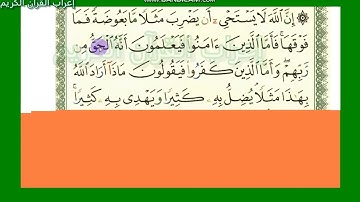 إعراب القرآن الكريم
۞ إِنَّ ٱللَّهَ لَا يَسْتَحْىِۦٓ أَن يَضْرِبَ مَثَلًا مَّا بَعُوضَةً فَمَا
فَوْقَهَا ۚ فَأَمَّا ٱلَّذِينَ ءَامَنُوا۟ فَيَعْلَمُونَ أَنَّهُ ٱلْحَقُّ مِن
رَّبِّهِمْ ۖ وَأَمَّا ٱلَّذِينَ كَفَرُوا۟ فَيَقُولُونَ مَاذَآ أَرَادَ ٱللَّهُ
بِهَٰذَا مَثَلًا ۘ يُضِلُّ بِهِۦ كَثِيرًا وَيَهْدِى بِهِۦ كَثِيرًا ۚ